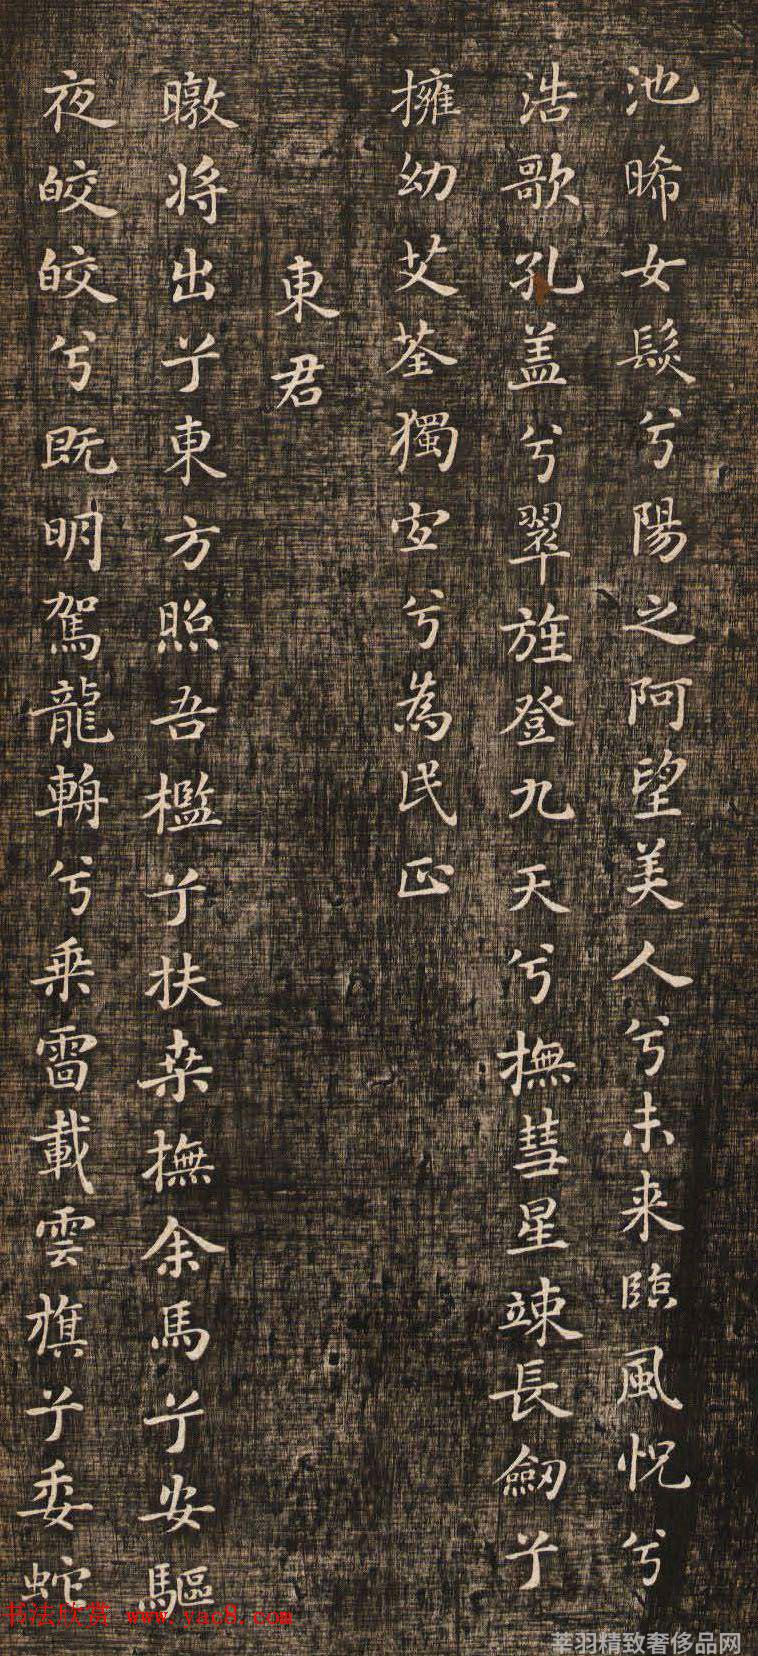 池晞女髮兮陽之阿望美人兮未来臨風怳兮
浩歌孔盖兮翠旌登九天兮撫彗星竦長劒兮
擁幼艾荃獨宜兮為民正
東君
暾将出兮東方照吾檻兮扶桒撫余馬兮安驅
夜皎皎兮既明駕龍輈兮乗雷載雲旗兮委蛇
书法欣赏 www.yac8.com
莘羽精致奢侈品网